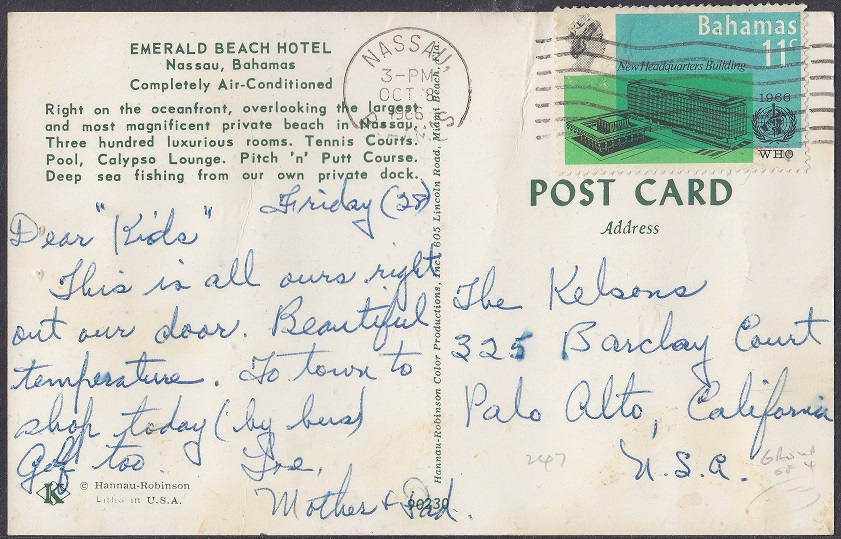 EMERALD BEACH HOTEL
Nassau, Bahamas
Completely Air-Conditioned
Right on the oceanfront, overlooking the largest
and most magnificent private beach in Nassau.
Three hundred luxurious rooms. Tennis Courts.
Pool, Calypso Lounge. Pitch 'n' Putt Course.
Deep sea fishing from our own private dock.
Friday (28)
Dear "Kids"
This is all ours right
out our door. Beautiful
temperature. To town to
shop today (by bus)
Golf too. Love,
Mother & Dad.
K
© Hannau-Robinson
Litho in U.S.A.
90230
Hannau-Robinson Color Productions, Inc. 605 Lincoln Road, Miami Beach, Fla.
NASSAU,
3-PM
OCT 8
1966
Bahamas
11c
New Headquarters Building
1966
WHO
POST CARD
Address
The Kelsons
325 Barclay Court
Palo Alto, California
U.S.A.
247
Group
of 4